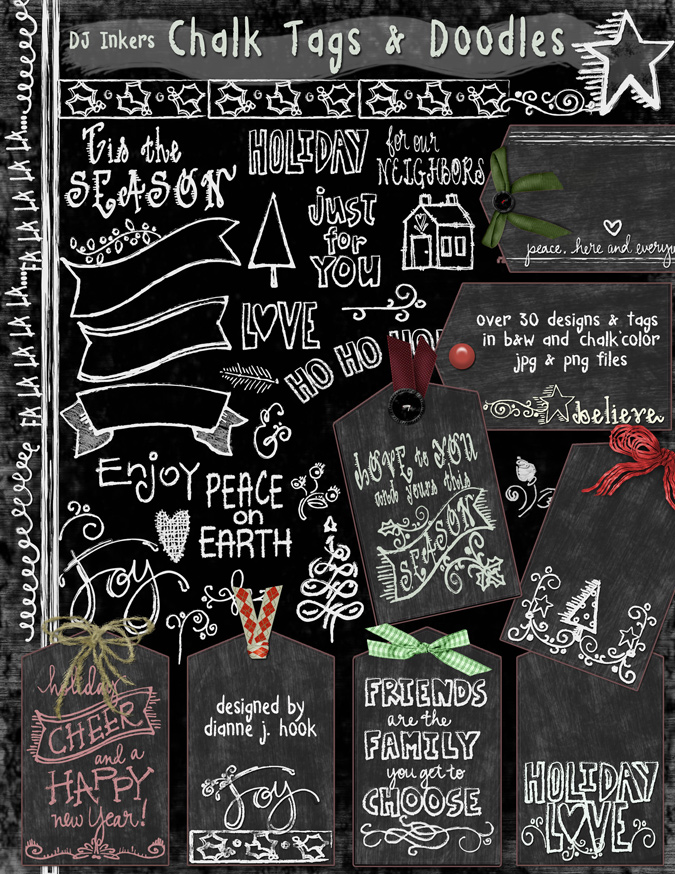 DJ Inkers Chalk Tags & Doodles
FA LA LA LA LA.... FA LA LA LA LA....
Tis the
SEASON
HOLIDAY
for our
NEIGHBORS
just
for
YOU
peace, here and
LOVE
HO HO HO
over 30 designs & tags
in b&w and chalk color
jpg & png files
believe
&
Enjoy
PEACE
on
EARTH
LOVE to YOU
and yours this
SEASON
Joy
holiday
CHEER
and a
HAPPY
new year!
designed by
dianne j. hook
Joy
FRIENDS
are the
FAMILY
you get to
CHOOSE
HOLIDAY
LOVE